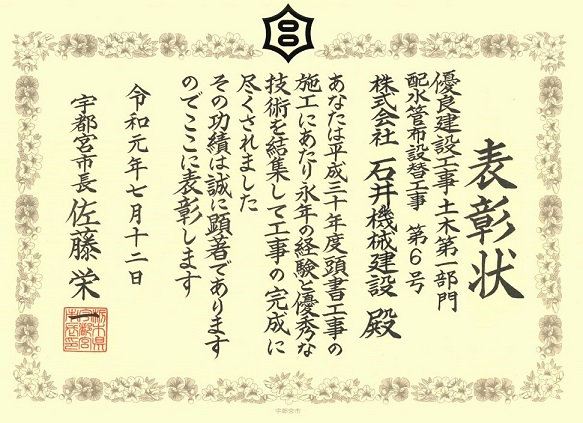 表彰状
優良建設工事 土木第一部門
配水管布設替工事 第6号
株式会社 石井機械建設 殿
あなたは平成三十年度頭書工事の
施工にあたり永年の経験と優秀な
技術を結集して工事の完成に
尽くされました
その功績は誠に顕著であります
のでここに表彰します
令和元年七月十二日
宇都宮市長 佐藤栄一
宇都宮市